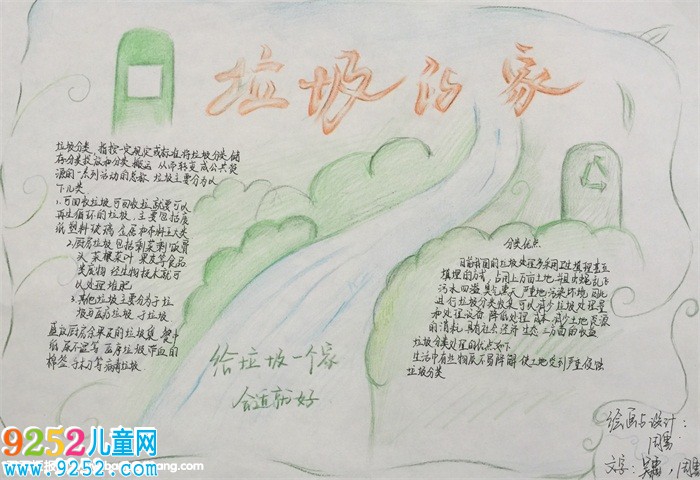 垃圾的家
垃圾分类,指按一定规定或标准将垃圾分类储
存分类投放和分类搬运,从而转变成公共资
源的一系列活动的总称.垃圾主要分为以
下几类
1.可回收垃圾可回收垃圾就要可以
再生循环的垃圾,主要包括废
纸塑料玻璃金属和布料五大类
2.厨房垃圾包括剩菜剩饭骨
头菜根菜叶果皮等食品
类废物经生物技术就可
以处理堆肥
3.其他垃圾主要分为干垃
圾与医疗垃圾
棉签手术刀等病毒垃圾.
分类优点
目前我国的垃圾处理多采用卫生填埋甚至
填埋的方式,占用上万亩土地,并且虫蝇乱飞
污水四溢臭气熏天严重地污染环境因此
进行垃圾分类收集可以减少垃圾处理量
和处理设备降低处理成本减少土地资源
的消耗.具有社会经济生态三方面的效益
垃圾分类处理的优点如下
生活中有些物质不易降解使土地受到严重侵蚀
垃圾分类
给垃圾一个家
合适就好
绘画与设计:
文字:
9252儿童网
www.9252.com